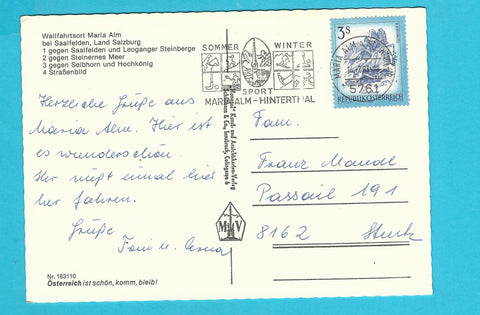 Wallfahrtsort Maria Alm
bei Saalfelden, Land Salzburg
1 gegen Saalfelden und Leoganger Steinberge
2 gegen Steinernes Meer
3 gegen Selbhorn und Hochkönig
4 Straßenbild
SOMMER WINTER
SPORT
MARIA ALM - HINTERTHAL
3s
REPUBLIK ÖSTERREICH
MARIA ALM
5761
Herzliche Grüße aus
Maria Alm. Hier ist
es wunderschön.
Ihr müßt einmal hier
her fahren.
Grüße
Fam. u.
Fam.
Franz Mandl
Passail 191
8162
M V
Nr. 163110
Österreich ist schön, komm, bleib!